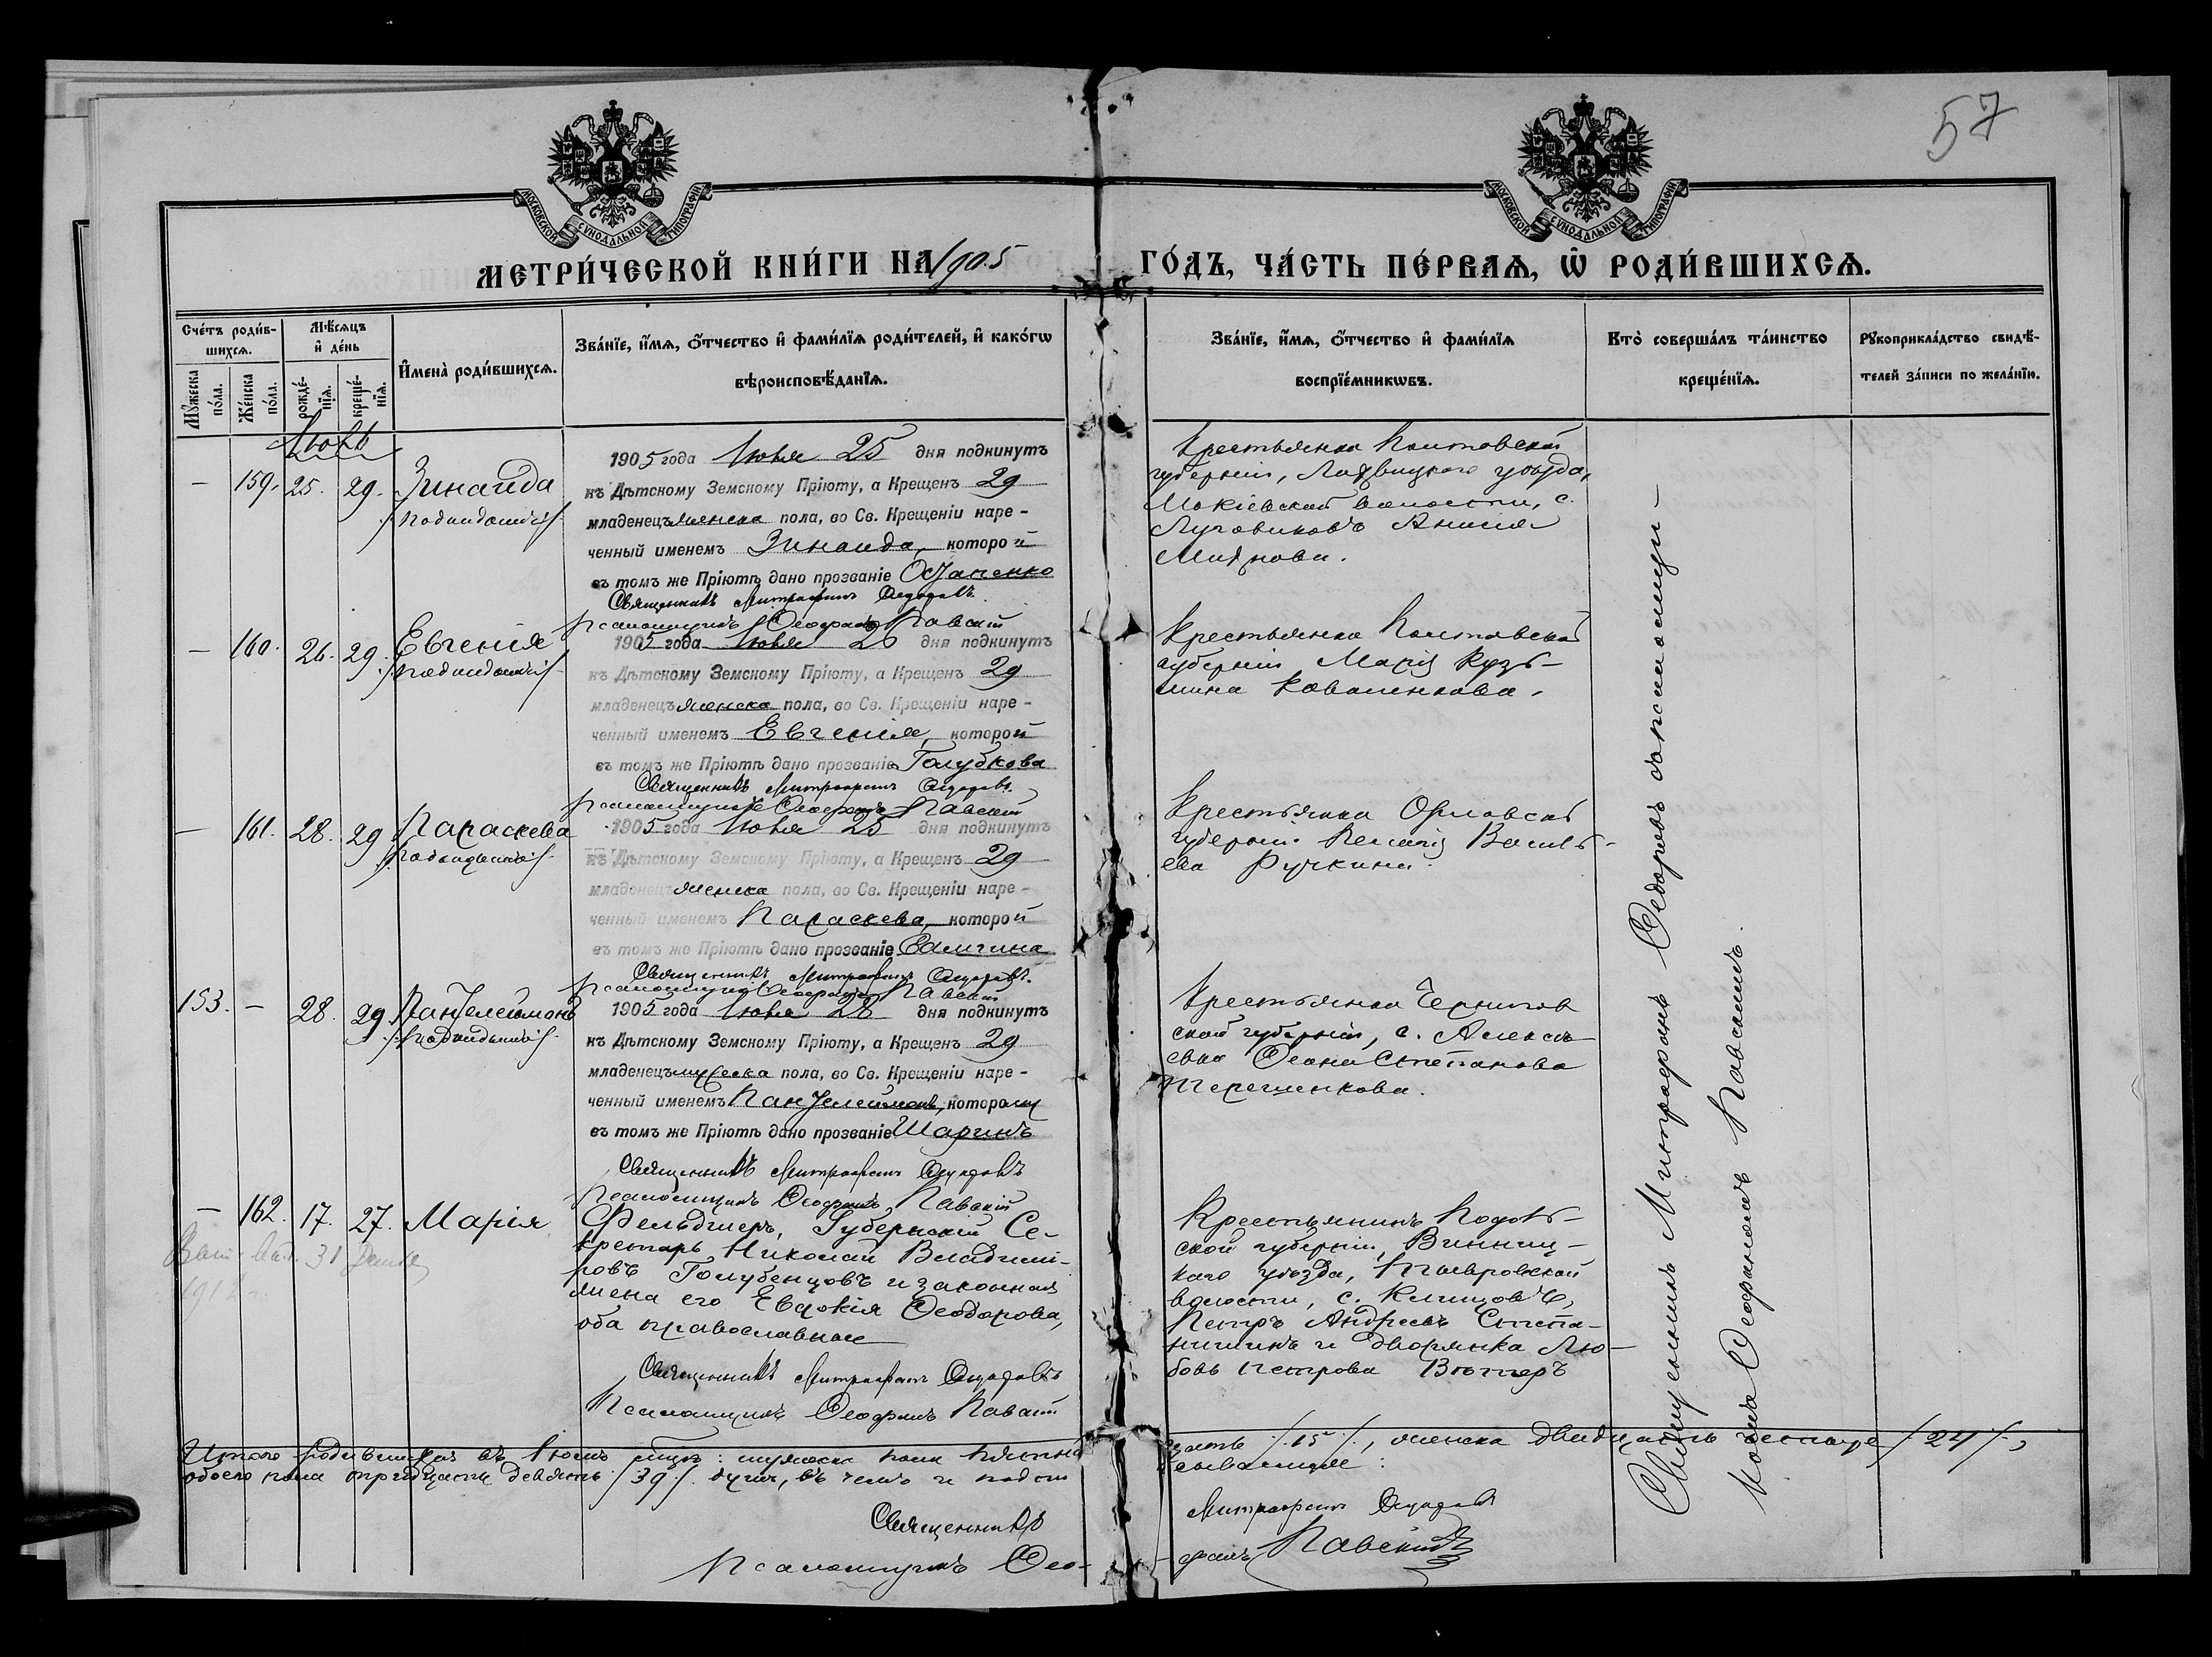 57
МОСКОВСКОЙ СѴНОДАЛЬНОЙ ТИПОГРАФІИ
МОСКОВСКОЙ СѴНОДАЛЬНОЙ ТИПОГРАФІИ
МЕТРИ́ЧЕСКОЙ КНИ́ГИ НА 1905 ГО́ДЪ, ЧА́СТЬ ПЕ́РВАѦ, Ѡ҆ РОДИ́ВШИХСѦ.
Сче́тъ роди́в-
шихсѧ.
Мꙋ́жеска по́ла.
Же́нска по́ла.
Мѣ́сѧцъ
и҆ де́нь
рожде́-
нїѧ.
креще́-
нїѧ.
И҆мена̀ роди́вшихсѧ.
Зва́нїе, и҆́мѧ, ѻ҆́тчество и҆ фами́лїѧ роди́телей, и҆ како́гѡ
вѣроисповѣ́данїѧ.
Зва́нїе, и҆́мѧ, ѻ҆́тчество и҆ фами́лїѧ
воспрїе́мникѡвъ.
Кто̀ соверша́лъ та́инство
креще́нїѧ.
Рꙋкоприкла́дство свидѣ́-
телей за́писи по жела́нїю.
Іюль
— 159. 25. 29. Зинаида
1905 года Іюля 25 дня подкинутъ
къ Дѣтскому Земскому Пріюту, а Крещенъ 29
младенецъ женска пола, во Св. Крещеніи наре-
ченный именемъ Зинаида, которой
въ томъ же Пріютѣ дано прозваніе Остапенко
Священникъ Митрофанъ Ѳедоровъ
Псаломщикъ Ѳеофанъ Павскій
Крестьянка Полтавской
губерніи, Лохвицкаго уѣзда,
Мокіевской волости, с.
Луговиковъ Анисія
— 160. 26. 29. Евгенія
1905 года Іюля 26 дня подкинутъ
къ Дѣтскому Земскому Пріюту, а Крещенъ 29
младенецъ женска пола, во Св. Крещеніи наре-
ченный именемъ Евгенія, которой
въ томъ же Пріютѣ дано прозваніе Голубкова
Священникъ Митрофанъ Ѳедоровъ
Псаломщикъ Ѳеофанъ Павскій
Крестьянка Полтавской
губерніи Марія Кузь-
мина Коваленкова.
— 161. 28. 29 Параскева
1905 года Іюля 25 дня подкинутъ
къ Дѣтскому Земскому Пріюту, а Крещенъ 29
младенецъ женска пола, во Св. Крещеніи наре-
ченный именемъ Параскева, которой
въ томъ же Пріютѣ дано прозваніе
Священникъ Митрофанъ Ѳедоровъ
Псаломщикъ Ѳеофанъ Павскій
Крестьянка Орловской
губерніи Василь-
ева Ручкина.
153. — 28. 29. Пантелеимонъ
1905 года Іюля 28 дня подкинутъ
къ Дѣтскому Земскому Пріюту, а Крещенъ 29
младенецъ мужеска пола, во Св. Крещеніи наре-
ченный именемъ Пантелеимонъ, которому
въ томъ же Пріютѣ дано прозваніе Шаринъ
Священникъ Митрофанъ Ѳедоровъ
Псаломщикъ Ѳеофанъ Павскій
Крестьянка Чернигов
ской губерніи, с. Алексѣ
евки Степанова
Терещенкова.
— 162. 17. 27. Марія
31
Фельдшеръ, Губернскій Се-
кретарь Николай Владимі-
ровъ Голубенцовъ и законная
жена его Евдокія Ѳеодорова,
оба православные
Священникъ Митрофанъ Ѳедоровъ
Псаломщикъ Ѳеофанъ Павскій
Крестьянинъ Подоль-
ской губерніи, Винниц-
каго уѣзда, Пывровской
волости, с. Клищовъ,
Петръ Андреевъ Степа-
нишинъ и дворянка Лю-
бовь Петрова
Священникъ Митрофанъ Ѳедоровъ съ псаломщи-
комъ Ѳеофаномъ Павскимъ.
Итого родившихся въ Іюлѣ мѣсяцѣ: мужеска пола пятнад
цать /.15./, женска двадцать четыре /.24./,
обоего пола тридцать девять /.39./ душъ, въ чемъ и подпи
сываемся:
Священникъ Митрофанъ Ѳедоровъ
Псаломщикъ Ѳео-
фанъ Павскій